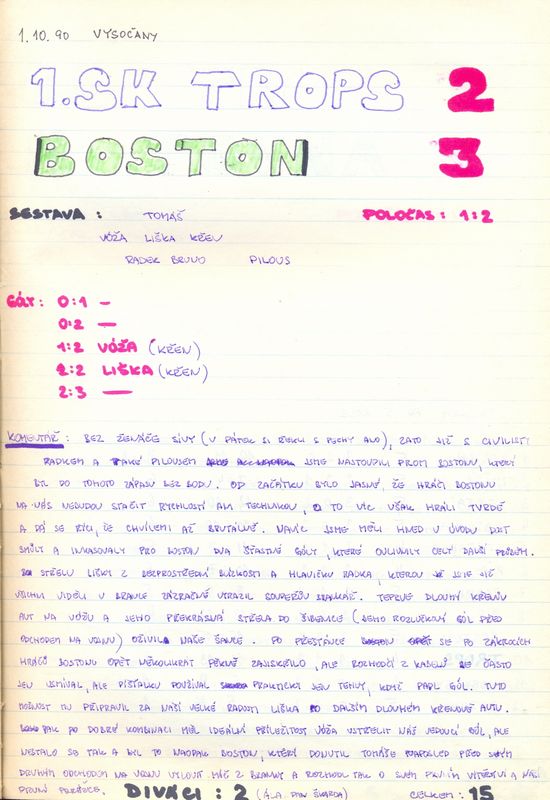 1.10.90 VYSOČANY
1.SK TROPS 2
BOSTON 3
SESTAVA : TOMÁŠ POLOČAS : 1:2
VÓŽA LIŠKA KŘEN
RADEK BRUNO PILOUS
GÓLY: 0:1 —
0:2 —
1:2 VÓŽA (KŘEN)
2:2 LIŠKA (KŘEN)
2:3 —
KOMENTÁŘ : BEZ ŽENÁČE SÍVY (V PÁTEK SI ŘEKLI S PECHY ANO), ZATO JIŽ S CIVILISTY
RADKEM A TAKÉ PILOUSEM JSME NASTOUPILI PROTI BOSTONU, KTERÝ
BYL DO TOHOTO ZÁPASU BEZ BODU. OD ZAČÁTKU BYLO JASNÉ, ŽE HRÁČI BOSTONU
NA NÁS NEBUDOU STAČIT RYCHLOSTÍ ANI TECHNIKOU, O TO VÍC VŠAK HRÁLI TVRDĚ
A DÁ SE ŘÍCI, ŽE CHVÍLEMI AŽ BRUTÁLNĚ. NAVÍC JSME MĚLI HNED V ÚVODU DOST
SMŮLY A INKASOVALY PRO BOSTON DVA ŠŤASTNÉ GÓLY, KTERÉ OVLIVNILY CELÝ DALŠÍ PRŮBĚH.
STŘELU LIŠKY Z BEZPROSTŘEDNÍ BLÍZKOSTI A HLAVIČKU RADKA, KTEROU JSME JIŽ
VŠICHNI VIDĚLI V BRANCE ZÁZRAČNĚ VYRAZIL SOUPEŘŮV BRANKÁŘ. TEPRVE DLOUHÝ KŘENŮV
AUT NA VÓŽU A JEHO PŘEKRÁSNÁ STŘELA DO ŠIBENICE (JEHO ROZLUČKOVÝ GÓL PŘED
ODCHODEM NA VOJNU) OŽIVILA NAŠE ŠANCE. PO PŘESTÁVCE SE PO ZÁKROCÍCH
HRÁČŮ BOSTONU OPĚT NĚKOLIKRÁT PĚKNĚ ZAJISKŘILO, ALE ROZHODČÍ Z KABELŮ SE ČASTO
JEN USMÍVAL, ALE PÍŠŤALKU POUŽÍVAL PRAKTICKY JEN TEHDY, KDYŽ PADL GÓL. TUTO
MOŽNOST MU PŘIPRAVIL ZA NAŠÍ VELKÉ RADOSTI LIŠKA PO DALŠÍM DLOUHÉM KŘENOVĚ AUTU.
PAK PO DOBRÉ KOMBINACI MĚL IDEÁLNÍ PŘÍLEŽITOST VÓŽA VSTŘELIT NÁŠ VEDOUCÍ GÓL, ALE
NESTALO SE TAK A BYL TO NAOPAK BOSTON, KTERÝ DONUTIL TOMÁŠE NAPOSLED PŘED SVÝM
DRUHÝM ODCHODEM NA VOJNU VYLOVIT MÍČ Z BRANKY A ROZHODL TAK O SVÉM PRVNÍM VÍTĚZSTVÍ A NAŠÍ
PRVNÍ PORÁŽCE. DIVÁCI : 2 (Á.A. PAN ŠKARDA) CELKEM : 15